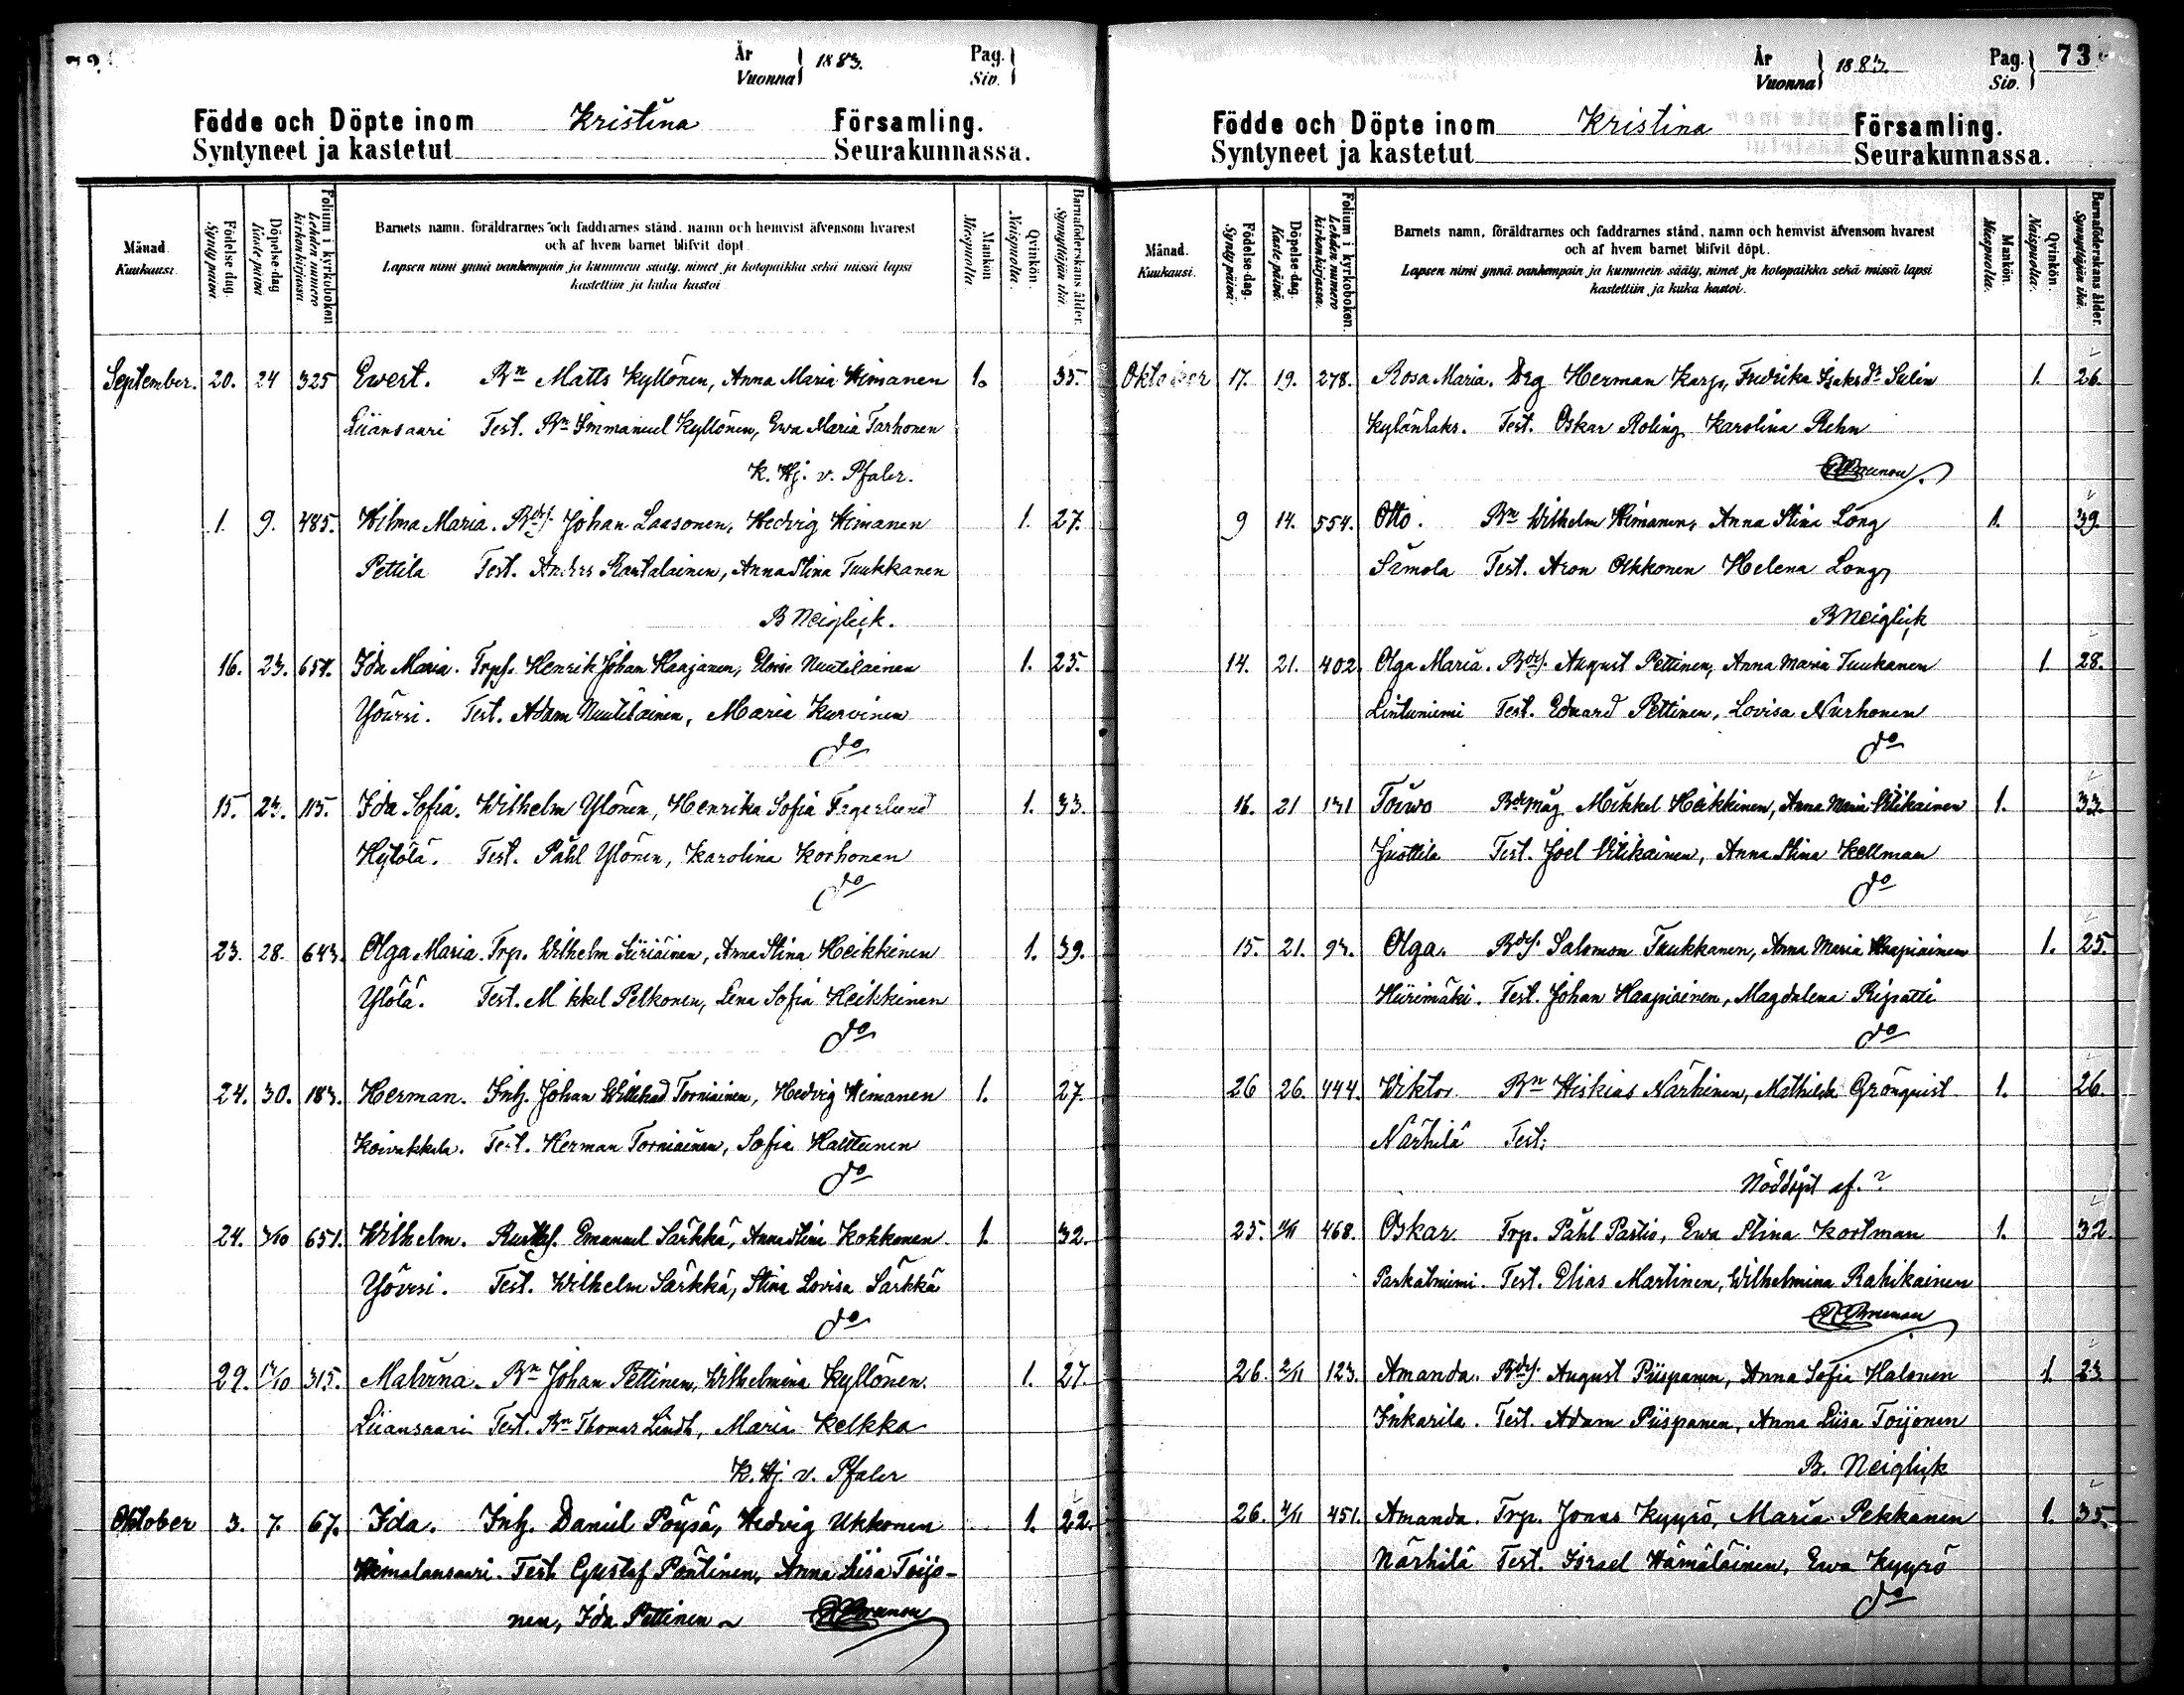 År
Vuonna
1883.
Pag.
Siv.
Födde och Döpte inom Kristina Församling.
Syntyneet ja kastetut Seurakunnassa.
Månad.
Kuukausi.
Födelse-dag.
Synty päivä.
Döpelse-dag
Kaste päivä
Folium i kyrkoboken
Lehden numero kirkonkirjassa.
Barnets namn, föräldrarnes och faddrarnes stånd, namn och hemvist äfvensom hvarest
och af hvem barnet blifvit döpt.
Lapsen nimi ynnä vanhempain ja kummein sääty, nimet ja kotopaikka sekä missä lapsi
kastettiin ja kuka kastoi.
Mankön
Miespuolta
Qvinkön.
Naispuolta.
Barnaföderskans ålder.
Synnyttäjän ikä.
September. 20. 24 325 Ewert. Bn Matts Kyllönen, Anna Maria Himanen 1. 35.
Liiansaari Test. Bn Immanuel Kyllönen, Ewa Maria Tarhonen
K. Hj. v. Pfaler.
1. 9. 485. Hilma Maria. Bdsf. Johan Laasonen, Hedvig Himanen 1. 27.
Pettila Test. Anders Rantalainen, Anna Stina Tuukkanen
B Neiglick.
16. 23. 657. Ida Maria. Trpf. Henrik Johan Haajanen, Nuutilainen 1. 25.
Yöveri. Test. Adam Nuutilainen, Maria Kurvinen
do
15. 23. 115. Ida Sofia. Wilhelm Ylönen, Henrika Sofia Fagerlund 1. 33.
Hytölä. Test. Påhl Ylönen, Karolina Korhonen
do
23. 28. 643. Olga Maria. Trp. Wilhelm Siiriäinen, Anna Stina Heikkinen 1. 39.
Ylölä. Test. Mikkel Pelkonen, Lena Sofia Heikkinen
do
24. 30. 183. Herman. Inh. Johan Willehad Torniainen, Hedvig Himanen 1. 27.
Koivukkala. Test. Herman Torniainen, Sofia Halttunen
do
24. 3/10 651. Wilhelm. Emanuel Särkkä, Anna Stina Kokkonen 1. 32.
Yöveri. Test. Wilhelm Särkkä, Stina Lovisa Särkkä
do
29. 315. Malvina. Bn Johan Pettinen, Wilhelmina Kyllönen. 1. 27.
Liiansaari Test. Bn Thomas Lindh, Maria Kelkka
K. Hj. v. Pfaler
Oktober 3. 7. 67. Ida. Inh. Daniel Pöysä, Hedvig Ukkonen 1. 22.
Himalansaari. Test. Gustaf Pöntinen, Anna Liisa Toijo-
nen, Ida Pettinen
År
Vuonna
1883.
Pag.
Siv.
73
Födde och Döpte inom Kristina Församling.
Syntyneet ja kastetut Seurakunnassa.
Månad.
Kuukausi.
Födelse-dag.
Synty päivä.
Döpelse-dag.
Kaste päivä.
Folium i kyrkoboken.
Lehden numero kirkonkirjassa.
Barnets namn, föräldrarnes och faddrarnes stånd, namn och hemvist äfvensom hvarest
och af hvem barnet blifvit döpt.
Lapsen nimi ynnä vanhempain ja kummein sääty, nimet ja kotopaikka sekä missä lapsi
kastettiin ja kuka kastoi.
Mankön.
Miespuolta.
Qvinkön.
Naispuolta.
Barnaföderskans ålder.
Synnyttäjän ikä.
Oktober 17. 19. 278. Rosa Maria. Drg Herman Karjo, Fredrika Isaksdr Sulin 1. 26.
Kylänlaks. Test. Oskar Roling Karolina Rehn
9 14. 554. Otto. Bn Wilhelm Himanen, Anna Stina Long 1. 39.
Sämola Test. Aron Olkkonen Helena Long
B Neiglick
14. 21. 402 Olga Maria. Bdsf. August Pettinen, Anna Maria Tuukanen 1. 28.
Lintuniemi Test. Eduard Pettinen, Lovisa Nurhonen
do
16. 21 131 Toivo Bdsmåg Mikkel Heikkinen, Anna Maria Vitikainen 1. 33.
Juottila Test. Joel Vitikainen, Anna Stina Kellman
do
15. 21. 93. Olga. Bdsf. Salomon Tuukkanen, Anna Maria Haapiainen 1. 25.
Hiirimäki. Test. Johan Haapiainen, Magdalena Ripatti
do
26 26. 444. Wiktor Bn Hiskias Närhinen, Mathilda Grönquist 1. 26.
Närhilä Test.
Nöddöpt af.?
25. 468. Oskar Trp. Påhl Partio, Ewa Stina Kortman 1. 32.
Parkatniemi. Test. Elias Martinen, Wilhelmina Rahikainen
26. 2/11 123. Amanda. Bdsf. August Piispanen, Anna Sofia Halonen 1. 23
Inkarila. Test. Adam Piispanen, Anna Liisa Toijonen
B. Neiglick
26. 4/11 451. Amanda. Trp. Jonas Kyyrö, Maria Pekkanen 1. 35.
Närhilä Test. Israel Hämäläinen, Ewa Kyyrö
do